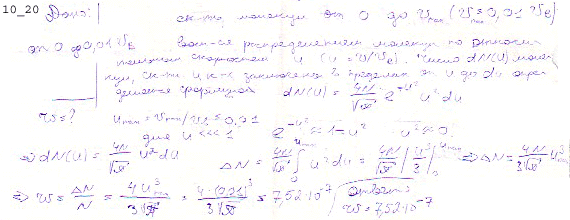 10_20 Дано: скорость молекул от 0 до υmax (υmax = 0,01 υв)
от 0 до 0,01 υв распределением молекул по относи-
скоростям u (u = υ/υв). Число dN(u) молекул,
в пределах от u до du опре-
деляется формулой dN(u) = 4N/√π e^-u² u² du
w = ? umax = υmax/υв = 0,01
для u <<< 1 e^-u² ≈ 1 - u² u² ≈ 0
⇒ dN(u) = 4N/√π u² du ΔN = 4N/√π ∫₀^umax u² du = 4N/√π |u³/3|₀^umax ⇒ ΔN = 4N/3√π u³max
⇒ w = ΔN/N = 4u³max/3√π = 4·(0,01)³/3√π = 7,52·10⁻⁷ ответ:
w = 7,52·10⁻⁷